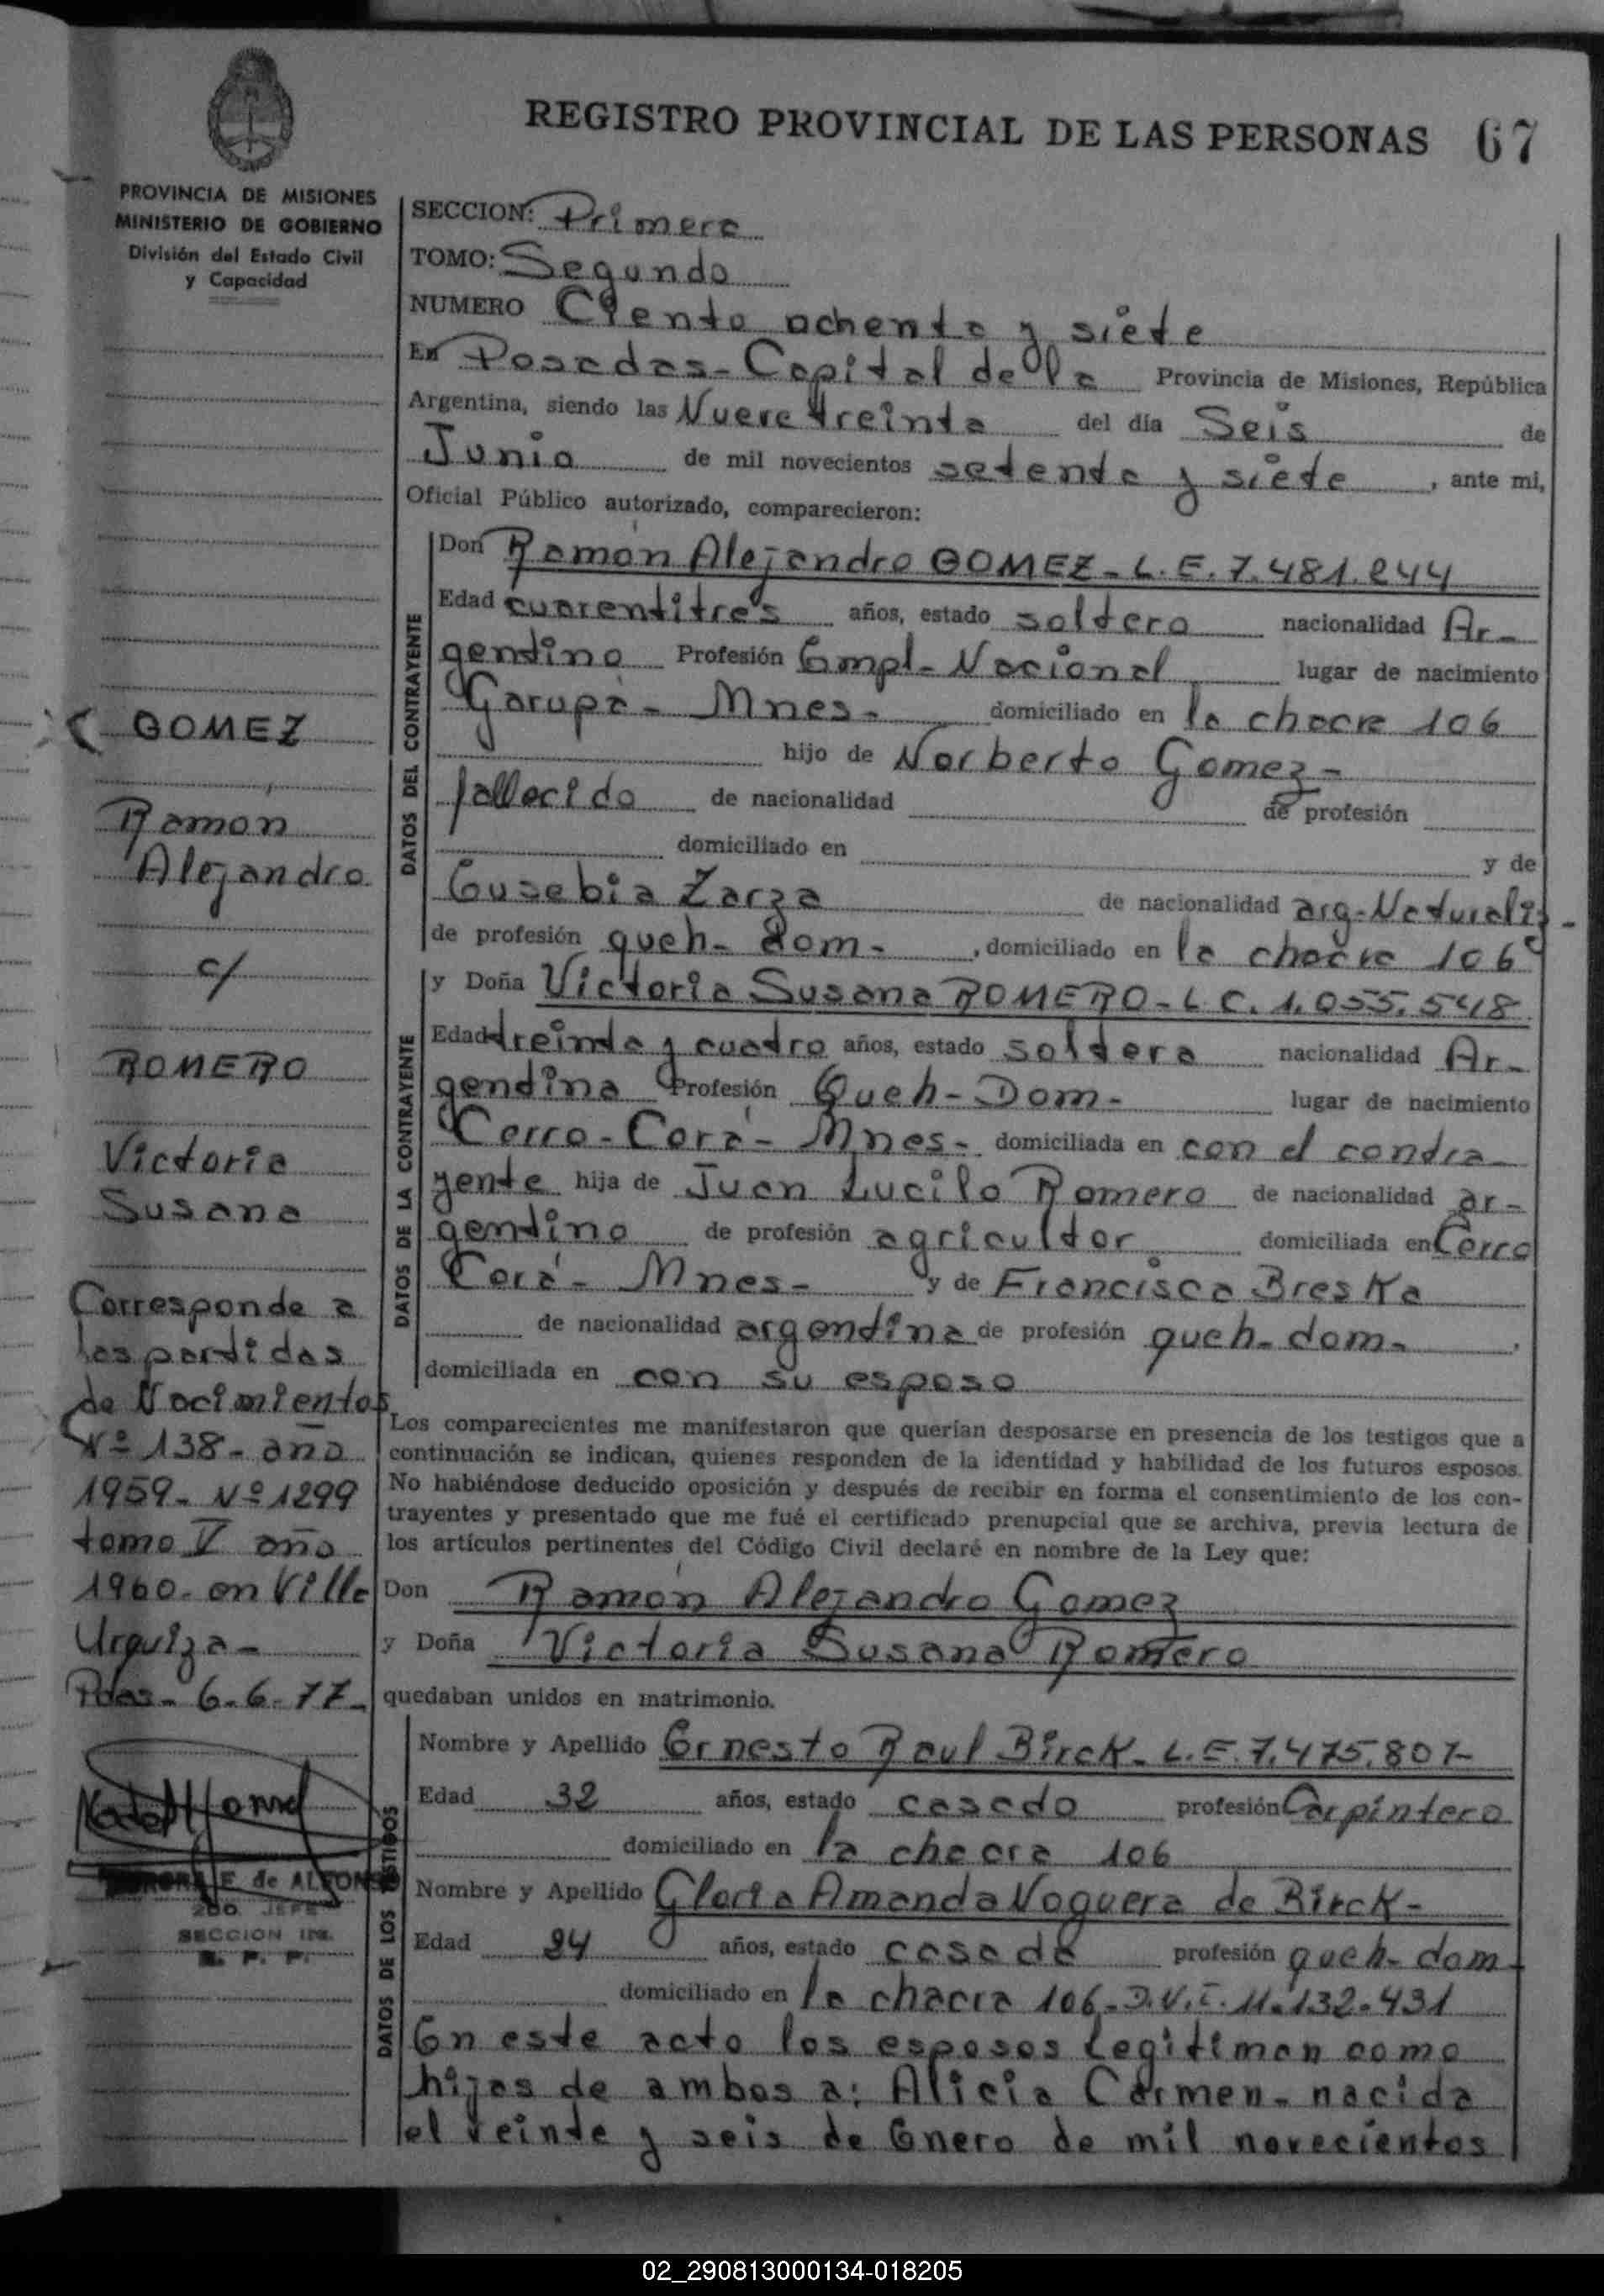 REGISTRO PROVINCIAL DE LAS PERSONAS 67
PROVINCIA DE MISIONES
MINISTERIO DE GOBIERNO
División del Estado Civil
y Capacidad
SECCION: Primera
TOMO: Segundo
NUMERO Ciento ochenta y siete
En Posadas - Capital de la Provincia de Misiones, República
Argentina, siendo las Nueve treinta del día Seis de
Junio de mil novecientos setenta y siete, ante mi,
Oficial Público autorizado, comparecieron:
DATOS DEL CONTRAYENTE
Don Ramón Alejandro GOMEZ - L.E. 7.481.244
Edad cuarentitres años, estado soltero nacionalidad Ar-
gentino Profesión Empl- Nacional lugar de nacimiento
Garupá - Mnes - domiciliado en la chacra 106
hijo de Norberto Gomez -
fallecido de nacionalidad de profesión
domiciliado en y de
Eusebia Zarza de nacionalidad arg- Naturaliz-
de profesión queh- dom - , domiciliado en la chacra 106
DATOS DE LA CONTRAYENTE
y Doña Victoria Susana ROMERO - L.C. 1.055.548
Edad treinta y cuatro años, estado soltera nacionalidad Ar-
gentina Profesión Queh- Dom - lugar de nacimiento
Cerro - Corá - Mnes - domiciliada en con el contra-
yente hija de Juan Lucilo Romero de nacionalidad ar-
gentino de profesión agricultor domiciliada en Cerro
Corá - Mnes - y de Francisca Breska
de nacionalidad argentina de profesión queh- dom - .
domiciliada en con su esposo
Los comparecientes me manifestaron que querían desposarse en presencia de los testigos que a
continuación se indican, quienes responden de la identidad y habilidad de los futuros esposos.
No habiéndose deducido oposición y después de recibir en forma el consentimiento de los con-
trayentes y presentado que me fué el certificado prenupcial que se archiva, previa lectura de
los artículos pertinentes del Código Civil declaré en nombre de la Ley que:
Don Ramón Alejandro Gomez
y Doña Victoria Susana Romero
quedaban unidos en matrimonio.
DATOS DE LOS TESTIGOS
Nombre y Apellido Ernesto Raul Birck - L.E. 7.475.807-
Edad 32 años, estado casado profesión Carpintero
domiciliado en la chacra 106
Nombre y Apellido Gloria Amanda Noguera de Birck -
Edad 24 años, estado casada profesión queh- dom-
domiciliado en la chacra 106 - D.N.I. 11.132.431
En este acto los esposos legitiman como
hijas de ambos a: Alicia Carmen - nacida
el veinte y seis de Enero de mil novecientos
GOMEZ
Ramon
Alejandro
c/
ROMERO
Victoria
Susana
Corresponde a
las partidas
de Nacimientos
Nº 138 - año
1959 - Nº 1299
tomo V año
1960 - en Villa
Urquiza -
Pdas - 6-6-77-
E. de ALFONSO
2DO. JEFE
SECCION INS.
R. P. P.
02_290813000134-018205